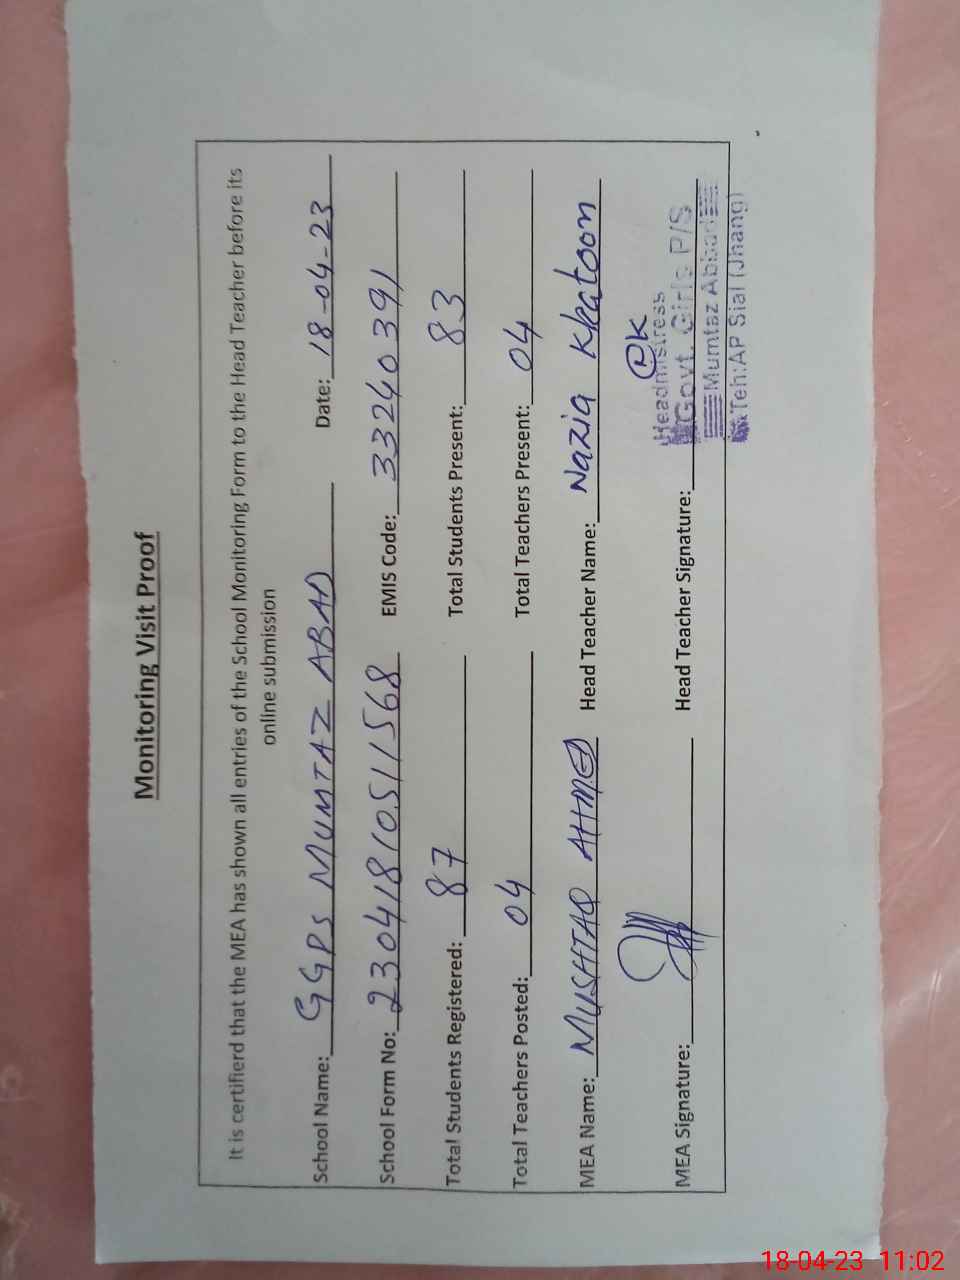 Monitoring Visit Proof
It is certifierd that the MEA has shown all entries of the School Monitoring Form to the Head Teacher before its
online submission
School Name: GGPS MUMTAZ ABAD Date: 18-04-23
School Form No: 23041810511568 EMIS Code: 33240391
Total Students Registered: 87 Total Students Present: 83
Total Teachers Posted: 04 Total Teachers Present: 04
MEA Name: MUSHTAQ AHMED Head Teacher Name: Nazia Khatoon
MEA Signature: Head Teacher Signature:
Headmistress
Govt. Girls P/S
Mumtaz Abbad
Teh: AP Sial (Jhang)
18-04-23 11:02